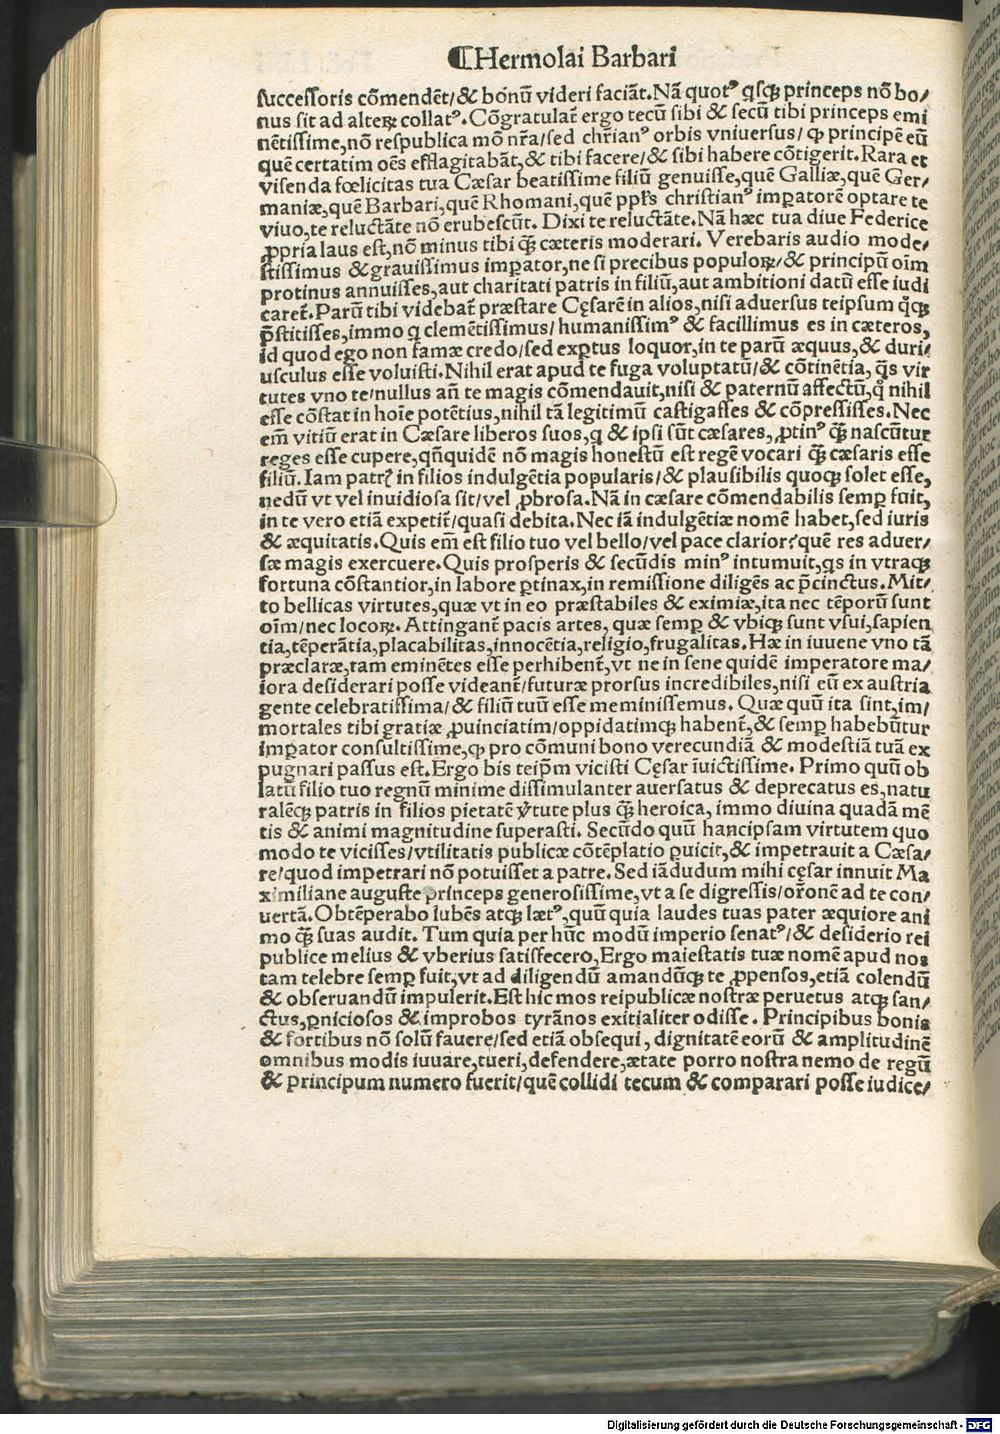 ¶Hermolai Barbari
succeſſoris cōmendēt/& bonū videri faciāt.Nā quotꝰ qſqꝫ princeps nō bo/
nus ſit ad alteꝝ collatꝰ.Cōgratulat᷑ ergo tecū ſibi & ſecū tibi princeps emi
nētiſſime,nō reſpublica mō nr̄a/ſed chr̄ianꝰ orbis vniuerſus/ ꝙ principē eū
quē certatim oēs efflagitabāt,& tibi facere/& ſibi habere cōtigerit.Rara et
viſenda fœlicitas tua Cæſar beatiſſime filiū genuiſſe,quē Galliæ,quē Ger/
maniæ,quē Barbari,quē Rhomani,quē ppl̄s chriſtianꝰ imꝑatorē optare te
viuo,te reluctāte nō erubeſcūt. Dixi te reluctāte.Nā hæc tua diue Federice
ꝓpria laus eſt,nō minus tibi qꝫ̄ cæteris moderari. Verebaris audio mode/
ſtiſſimus & grauiſſimus imꝑator,ne ſi precibus populoꝝ/& principū oīm
protinus annuiſſes,aut charitati patris in filiū,aut ambitioni datū eſſe iudi
caret᷑.Parū tibi videbat᷑ præſtare Cęſarē in alios,niſi aduerſus teipſum q̄qꝫ
p̄ſtitiſſes,immo q clemētiſſimus/ humaniſſimꝰ & facillimus es in cæteros,
id quod ego non famæ credo/ſed exꝑtus loquor,in te parū æquus,& duri/
uſculus eſſe voluiſti.Nihil erat apud te fuga voluptatū/& cōtinētia, q̄s vir
tutes vno te/nullus an̄ te magis cōmendauit,niſi & paternū affectū,q̊ nihil
eſſe cōſtat in hoīe potētius,nihil tā legitimū caſtigaſſes & cōpreſſiſſes.Nec
em̄ vitiū erat in Cæſare liberos ſuos,q & ipſi ſūt cæſares,ꝓtinꝰ qꝫ̄ naſcūtur
reges eſſe cupere,qn̄quidē nō magis honeſtū eſt regē vocari qꝫ̄ cæſaris eſſe
filiū. Iam patrꝭ in filios indulgētia popularis/& plauſibilis quoqꝫ ſolet eſſe,
nedū vt vel inuidioſa ſit/vel ꝓbroſa.Nā in cæſare cōmendabilis ſemꝑ fuit,
in te vero etiā expetit᷑/quaſi debita.Nec iā indulgētiæ nomē habet,ſed iuris
& æquitatis.Quis em̄ eſt filio tuo vel bello/vel pace clarior?quē res aduer/
ſæ magis exercuere.Quis proſperis & ſecūdis minꝰ intumuit,qs in vtraqꝫ
fortuna cōſtantior,in labore ꝑtinax,in remiſſione diligēs ac p̄cinctus.Mit/
to bellicas virtutes,quæ vt in eo præſtabiles & eximiæ,ita nec tēporū ſunt
oīm/nec locoꝝ. Attingant᷑ pacis artes, quæ ſemꝑ & vbiqꝫ ſunt vſui,ſapien
tia,tēperātia,placabilitas,innocētia,religio,frugalitas.Hæ in iuuene vno tā
præclaræ,tam eminētes eſſe perhibent᷑,vt ne in ſene quidē imperatore ma/
iora deſiderari poſſe videant᷑/futuræ prorſus incredibiles,niſi eū ex auſtria
gente celebratiſſima/& filiū tuū eſſe meminiſſemus. Quæ quū ita ſint,im/
mortales tibi gratiæ ꝓuinciatim/oppidatimqꝫ habent᷑,& ſemꝑ habebūtur
imꝑator conſultiſſime,ꝙ pro cōmuni bono verecundiā & modeſtiā tuā ex
pugnari paſſus eſt.Ergo bis teip̄m viciſti Cęſar īuictiſſime. Primo quū ob
latū filio tuo regnū minime diſſimulanter auerſatus & deprecatus es,natu
ralēqꝫ patris in filios pietatē v̓tute plus qꝫ̄ heroica, immo diuina quadā mē
tis & animi magnitudine ſuperaſti. Secūdo quū hancipſam virtutem quo
modo te viciſſes/vtilitatis publicæ cōtēplatio ꝑuicit,& impetrauit a Cæſa/
re/quod impetrari nō potuiſſet a patre.Sed iādudum mihi cęſar innuit Ma
ximiliane auguſte princeps generoſiſſime,vt a ſe digreſſis/or̄onē ad te con/
uertā.Obtēperabo lubēs atqꝫ lætꝰ,quū quia laudes tuas pater æquiore ani
mo qꝫ̄ ſuas audit. Tum quia per hūc modū imperio ſenatꝰ/& deſiderio rei
publice melius & vberius ſatiſfecero,Ergo maieſtatis tuæ nomē apud nos
tam telebre ſemꝑ fuit,vt ad diligendū amandūqꝫ te ꝓpenſos,etiā colendū
& obſeruandū impulerit.Eſt hic mos reipublicæ noſtræ peruetus atqꝫ ſan/
ctus,ꝑnicioſos & improbos tyrānos exitialiter odiſſe. Principibus bonis
& fortibus nō ſolū fauere/ſed etiā obſequi, dignitatē eorū & amplitudinē
omnibus modis iuuare,tueri,defendere,ætate porro noſtra nemo de regū
& principum numero fuerit/quē collidi tecum & comparari poſſe iudice/
Digitalisierung gefördert durch die Deutsche Forschungsgemeinschaft - DFG